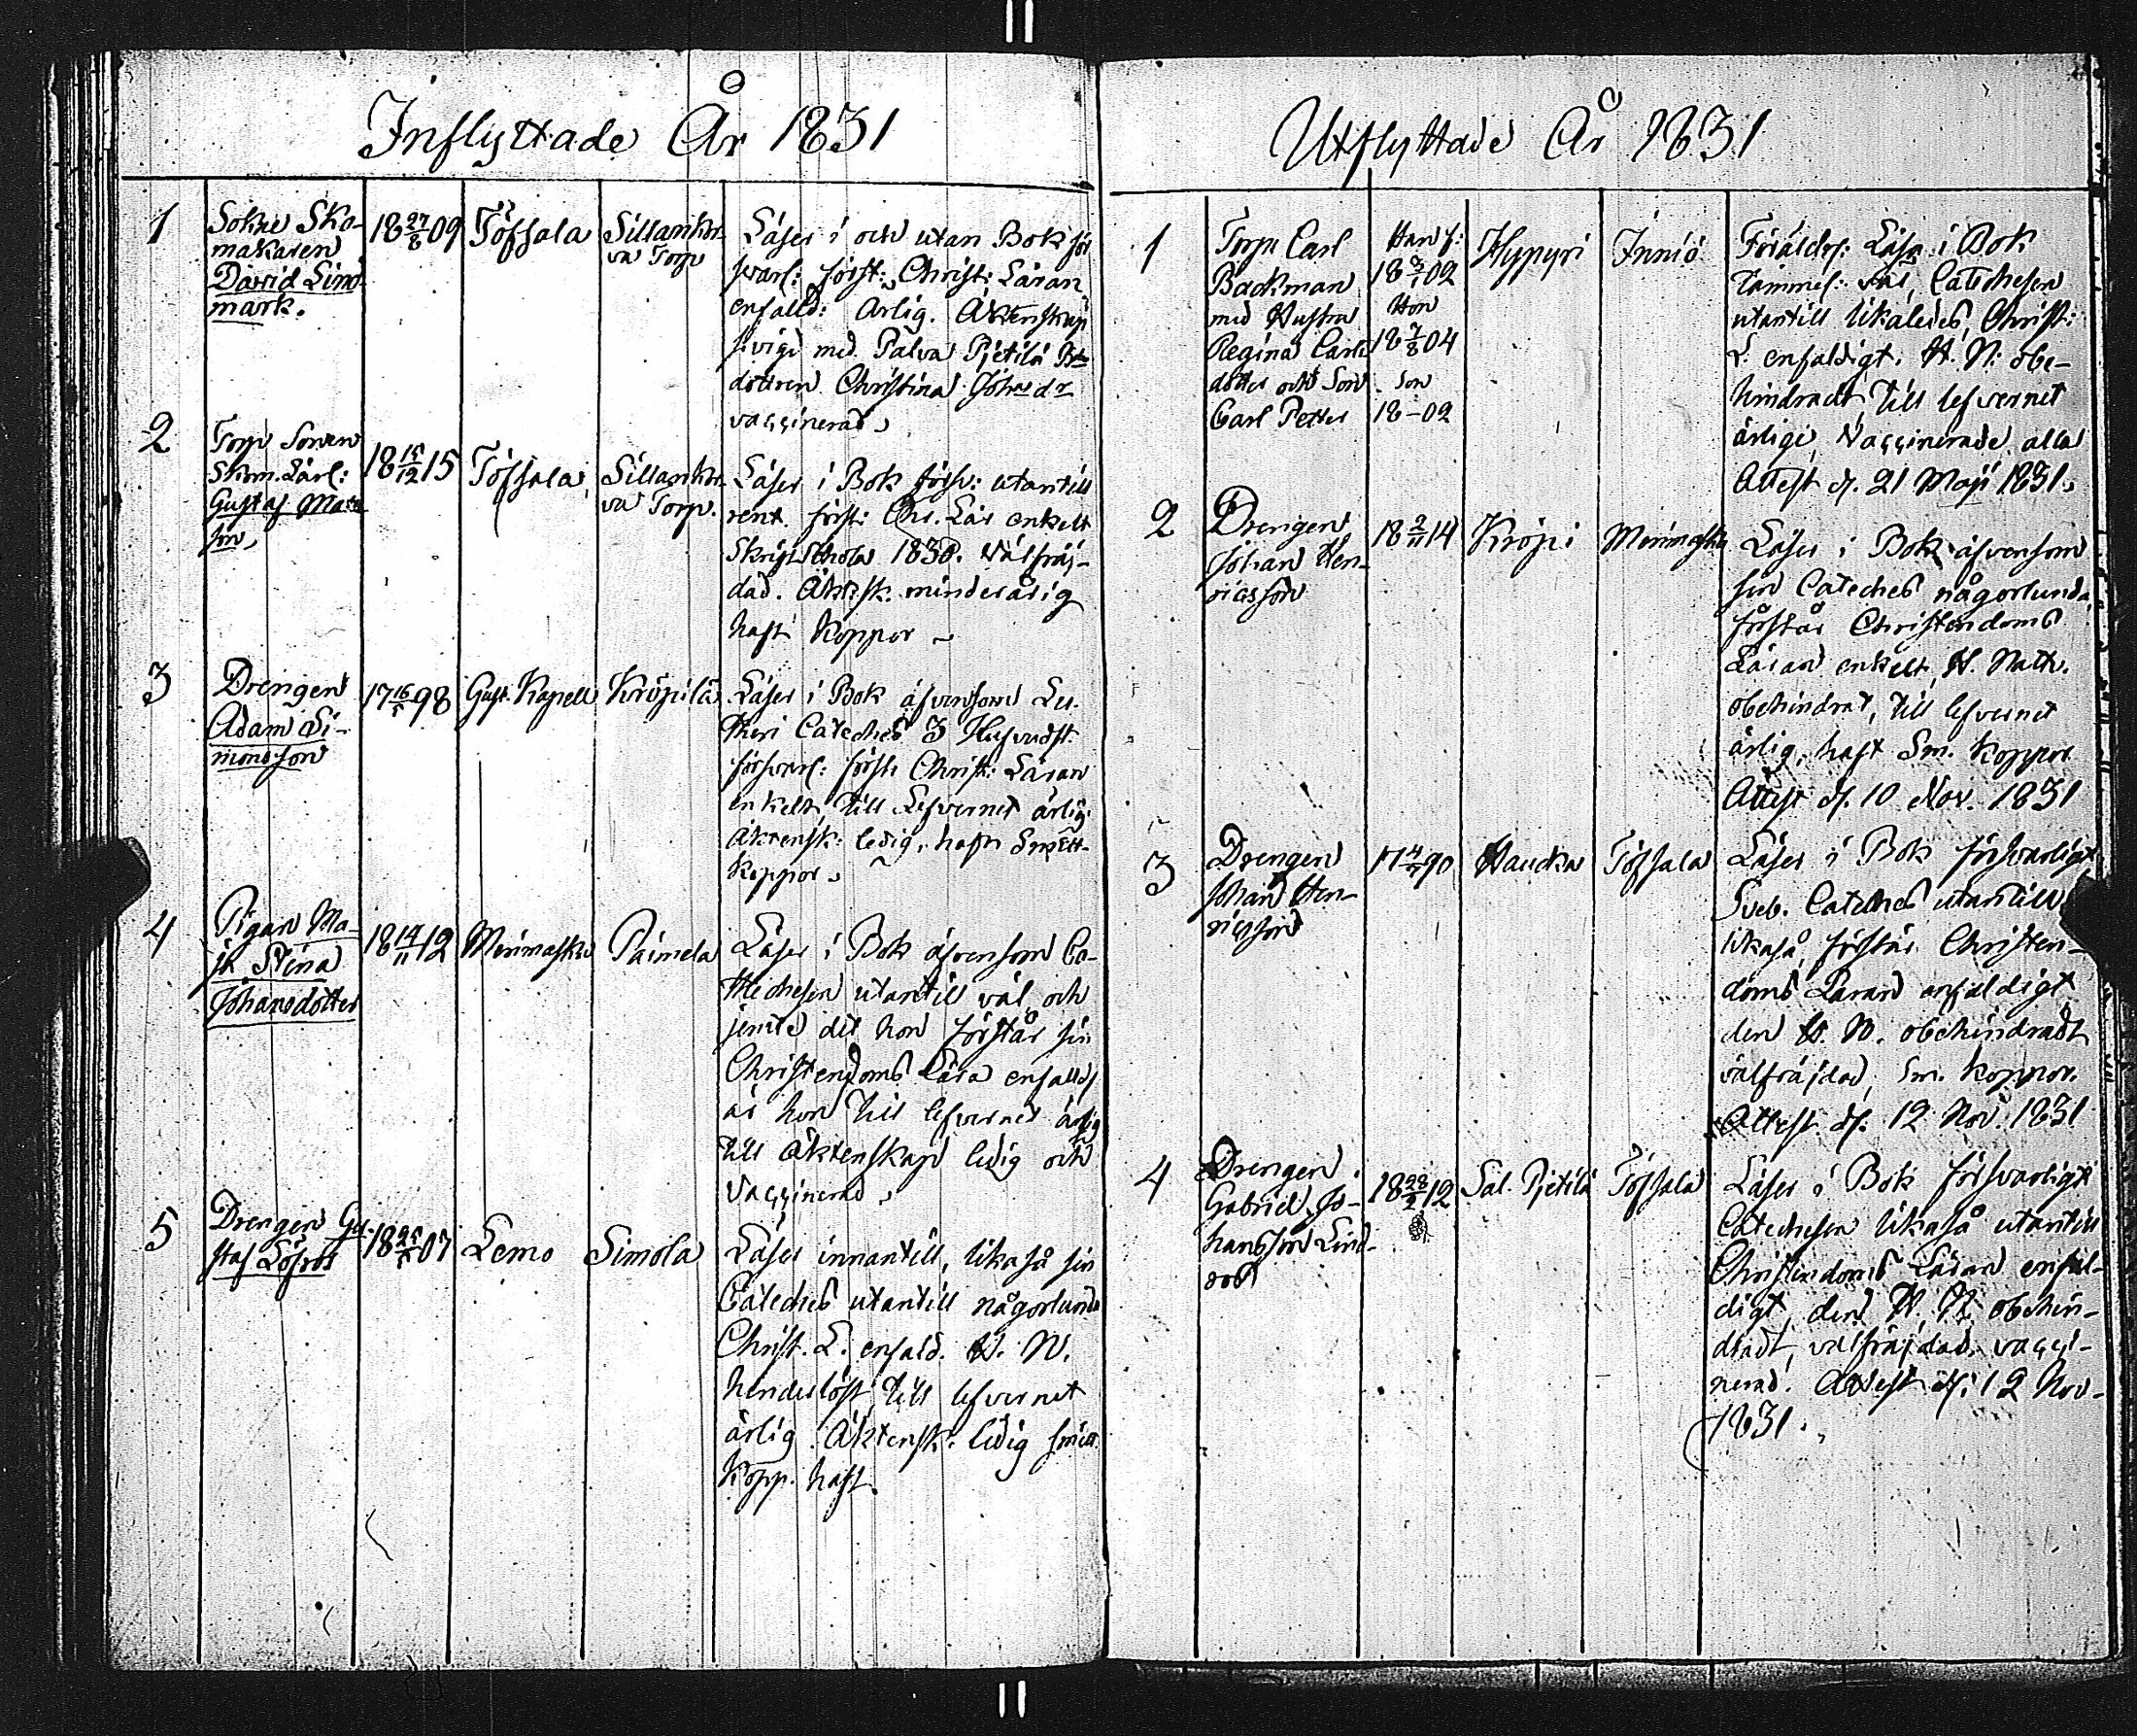 Inflyttade År 1831
1
Sokne Sko-
makaren
David Lind-
mark.
18 27/8 09
Töfsala
Sillankor-
va Torp
Läser i och utan Bok för
svarl: först: Christ: Läran
enfalld: Ärlig. Äktenskap
svigd med Palva Pjetilä
dottren Christina Johns dr
vaccinerad,
2
Torp Sonen
Skom. Lärl:
Gustaf Mats
son,
18 15/12 15
Töfsala
Sillankor-
va Torp.
Läser i Bok försv: utantill
rent. först: Chr. Lär enkelt
Skrift Schola 1830. Välfräj-
dad. Äktsk. minderårig
haft Koppor
3
Drengen
Adam Si-
monsson
17 16/5 98
Gust. Kapell
Kröpilä
Läser i Bok äfvensom Lu-
theri Cateches 3 Hufvudst.
försvarl: först: Christ: Läran
enkelt, till Lefvernet ärlig.
Äktensk: ledig, haft Smått-
koppor,
4
Pigan Ma-
ja Stina
Johansdotter
18 14/11 12
Merimasku
Paimela
Läser i Bok äfvensom Ca-
thechesen utantill väl och
jemte det hon förstår sin
Christendoms Lära enfalld
är hon till lefvernet ärlig
till Äktenskap ledig och
Vaccinerad,
5
Drengen Gu-
staf Löfros
18 25/5 07
Lemo
Simola
Läser innantill, likaså sin
Cateches utantill någorlunda
Christ. L. enfald. H. N.
hinderlöst, till lefvernet
ärlig. Äktensk. ledig smått
Kopp. haft.
Utflyttade År 1831
1
Torp Carl
Backman
med Hustru
Regina Carls
dotter och Son
Carl Petter
Han f:
18 3/1 02
Hon
18 7/8 04
Son
18 - 02
Hypyri
Iniö
Föräldr: Läsa i Bok
tämmel: väl, Catechesen
utantill likaledes, Christ:
L: enfaldigt. H. N: obe-
hindradt, till lefvernet
ärlige, Vaccinerade alla
Attest d. 21 Maji 1831.
2
Drengen
Johan Hen-
ricsson
18 2/11 14
Kröpi
Merimasku
Läser i Bok äfvensom
sin Cateches någorlunda,
förstår Christendoms
Läran enkelt, H. Nattv.
obehindrat, till lefvernet
ärlig, haft Sm. Koppor
Attest d. 10 Nov. 1831
3
Drengen
Johan Hen-
ricsson
17 4/5 90
Haucka
Töfsala
Läser i Bok försvarligt
Sveb. Cateches utantill
likaså, förstår Christen-
doms Läran enfaldigt
den H. N. obehindradt
välfräjdad, Sm. koppor.
Attest d. 12 Nov. 1831
4
Drengen
Gabriel Jo-
hansson Lind-
roos
18 28/2 12
Sal. Pjetilä
Töfsala
Läser i Bok försvarligt
Catechesen likaså utantill
Christendoms Läran enfal-
digt, den H. N. obehin-
dradt, välfräjdad, vacci-
nerad. Attest d. 12 Nov-
1831.